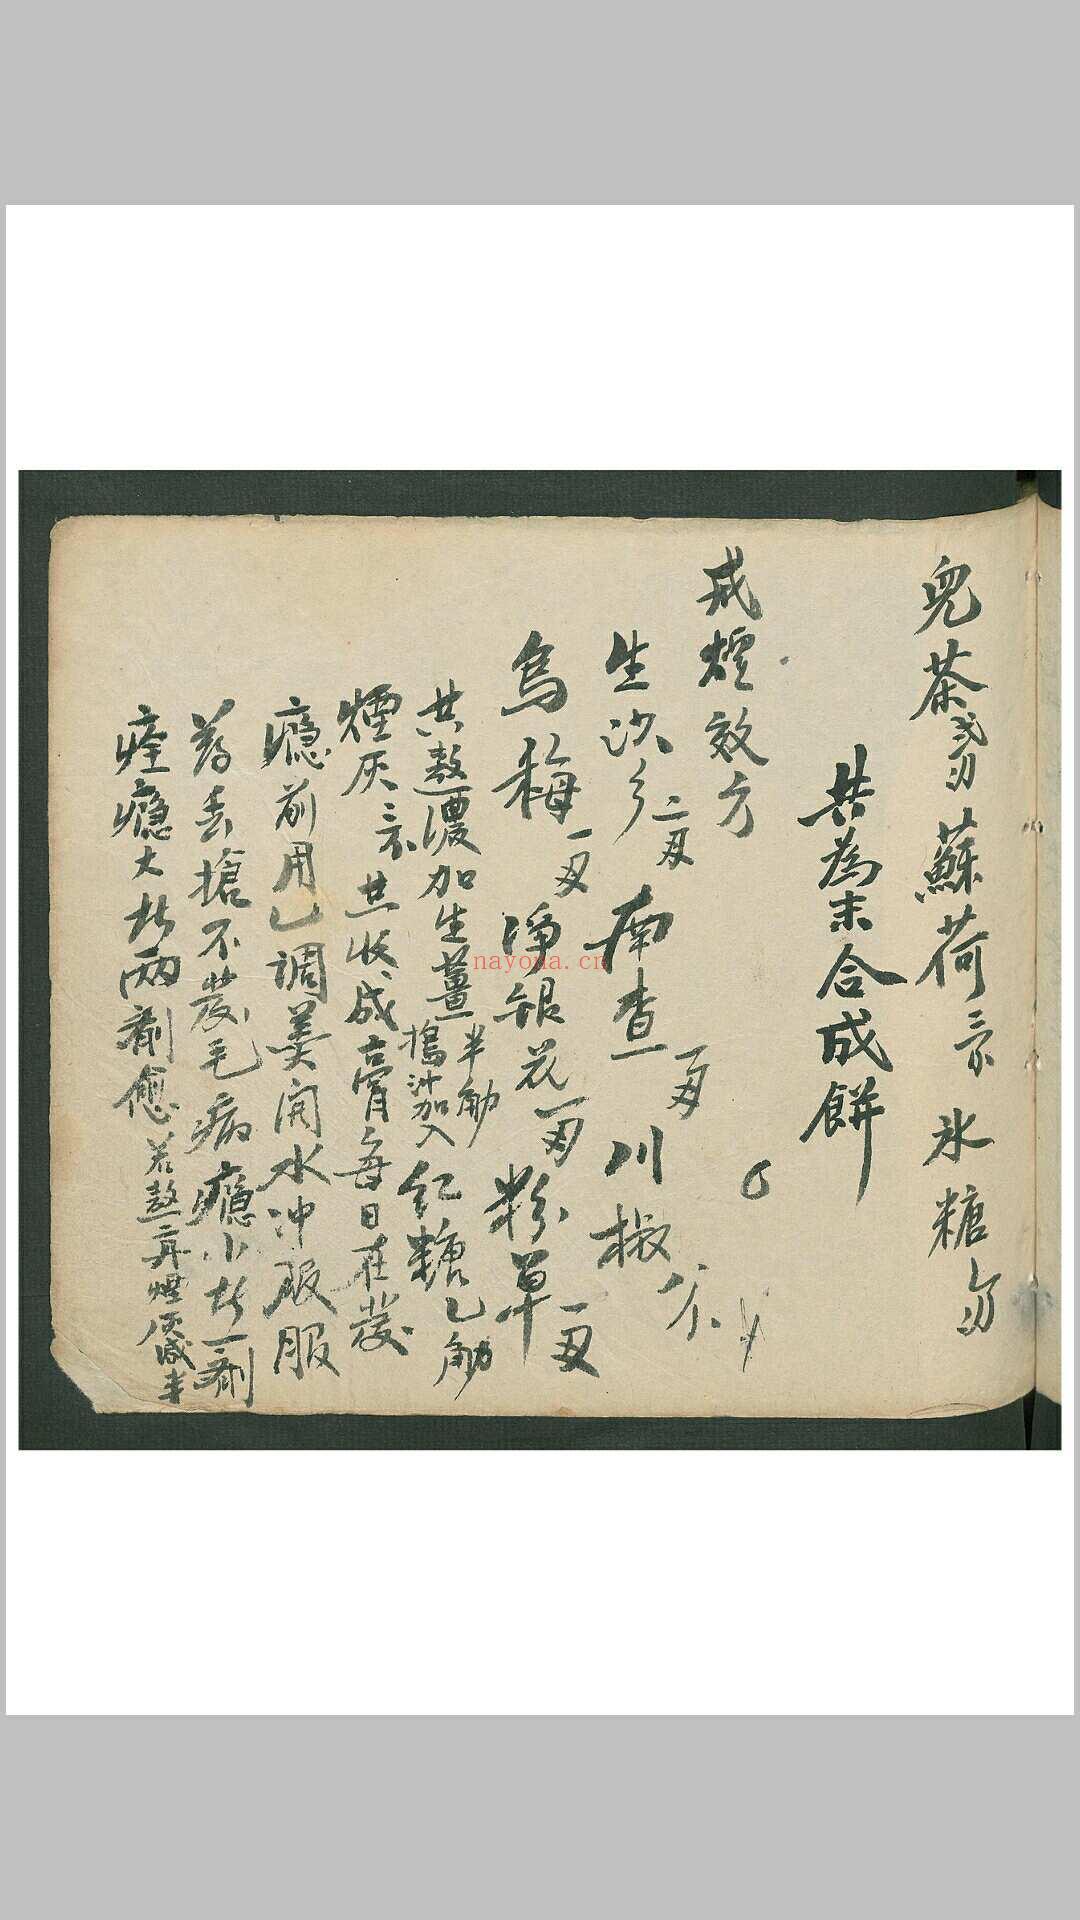 兒茶 蘇荷 氷糖
共為末合成餅
戒煙效方
生沙 二刄 南查一刄 川椒
烏梅一刄 淨銀花一刄 粉草一刄
共熬濃加生薑半觔搗汁加入紅糖乙觔
煙灰 共收成膏每日在發
癮前用乙調羹開水冲服服
丢搶不發毛病癮小 一劑
癮大 兩劑愈若熬 煙灰減半
nayona.cn